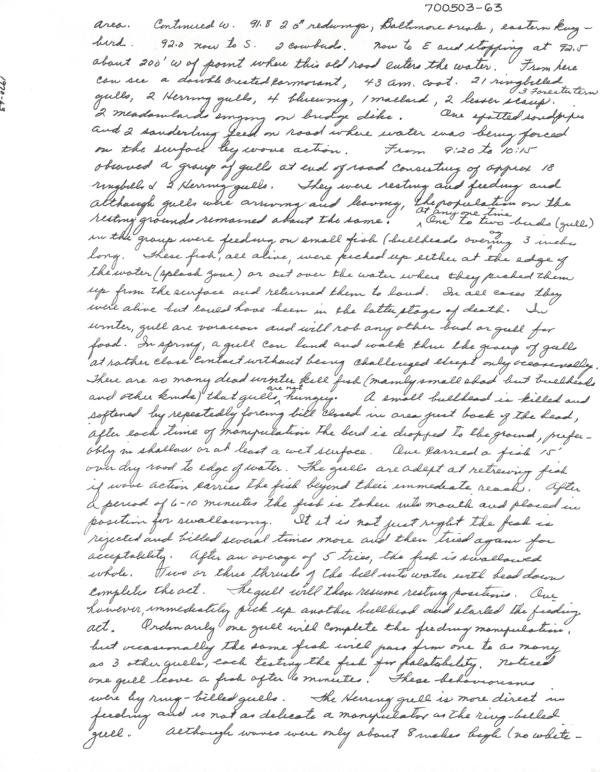 700503-63
area. Continued W. 91.8 2 ♂ redwings, Baltimore oriole, eastern king-
bird. 92.0 now to S. 2 cowbirds. Now to E and stopping at 92.5
about 200' W of point where this old road enters the water. From here
can see a double crested cormorant, 43 Am. Coot. 21 ringbilled
3 Forsters tern
gulls, 2 Herring gulls, 4 bluewing, 1 mallard, 2 lesser scaup.
2 meadowlarks singing on bridge dike. One spotted sandpiper
and 2 sanderling feed on road where water was being forced
on the surface by wave action. From 9:20 to 10:15
observed a group of gulls at end of road consisting of approx 18
ringbills & 2 Herring gulls. They were resting and feeding and
although gulls were arriving and leaving, the population on the
resting grounds remained about the same. At any one time One to two birds (gulls)
in the group were feeding on small fish (bullheads averaging 3 inches
long. These fish, all alive, were picked up either at the edge of
the water (splash zone) or out over the water where they picked them
up from the surface and returned them to land. In all cases they
were alive but could have been in the latter stages of death. In
winter, gull are voracious and will rob any other bird or gull for
food. In spring, a gull can land and walk thru the group of gulls
at rather close contact without being challenged except only occasionally.
There are so many dead winter kill fish (mainly small shad but bullheads
and other kinds) that gulls are not hungry. A small bullhead is killed and
softened by repeatedly forcing bill closed in area just back of the head,
after each time of manipulation the bird is dropped to the ground, prefer-
ably in shallow or at least a wet surface. One carried a fish 15'
over dry road to edge of water. The gulls are adept at retrieving fish
if wave action carries the fish beyond their immediate reach. After
a period of 6-10 minutes the fish is taken into mouth and placed in
position for swallowing. If it is not just right the fish is
rejected and billed several times more and then tried again for
acceptability. After an average of 5 tries, the fish is swallowed
whole. Two or three thrusts of the bill into water with head down
completes the act. The gull will then resume resting positions. One
however, immediately pick up another bullhead and started the feeding
act. Ordinarily one gull will complete the feeding manipulation,
but occasionally the same fish will pass from one to as many
as 3 other gulls, each testing the fish for palatability. Noticed
one gull leave a fish after 6 minutes. These behaviorisms
were by ring-billed gulls. The Herring gull is more direct in
feeding and is not as delicate a manipulator as the ring-billed
gull. Although waves were only about 8 inches high (no white-